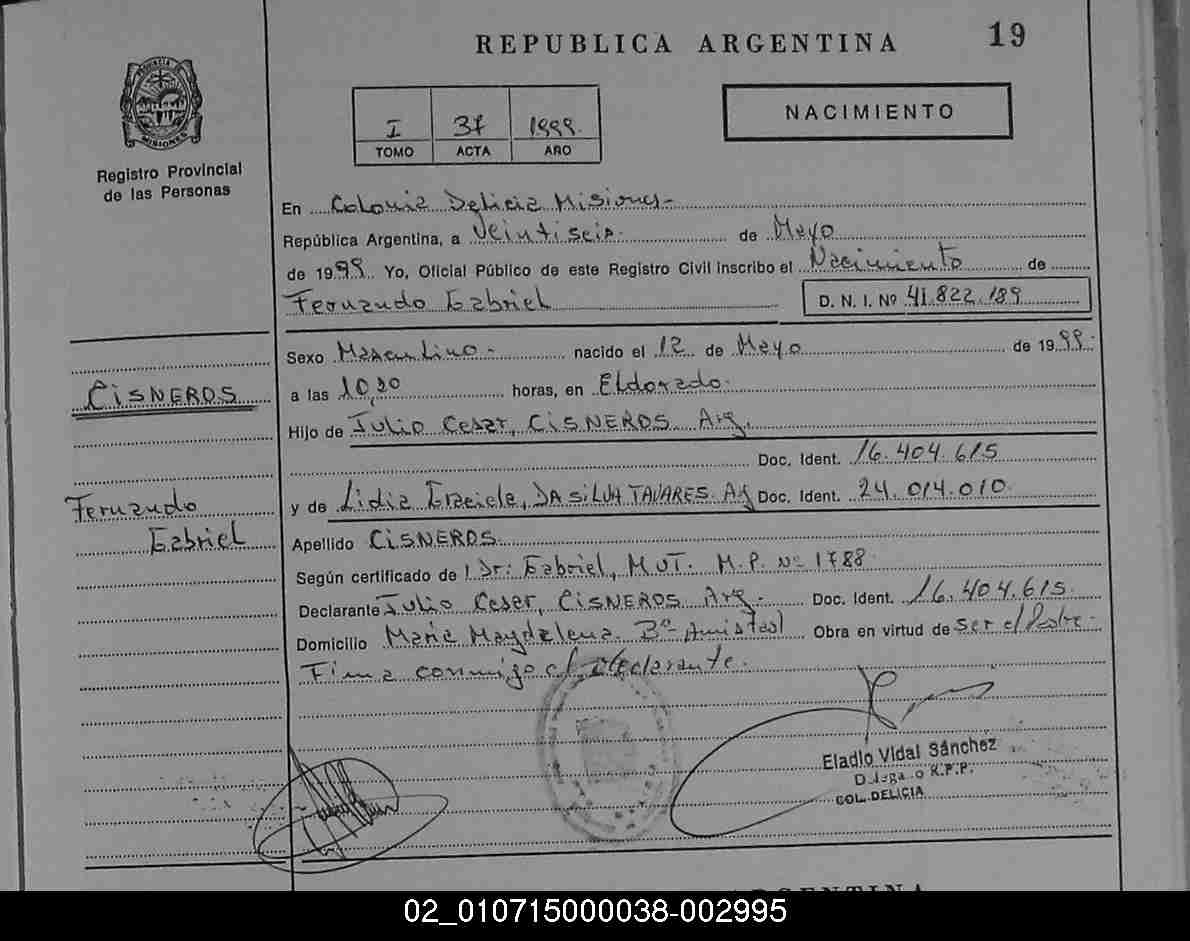 REPUBLICA ARGENTINA
19
PROVINCIA DE
MISIONES
Registro Provincial
de las Personas
I 37 1999.
TOMO ACTA AÑO
NACIMIENTO
En Colonia Delicia Misiones-
República Argentina, a Veintiseis. de Mayo
de 1999 Yo, Oficial Público de este Registro Civil inscribo el Nacimiento de
Fernando Gabriel
D. N. I. Nº 41.822.189
Sexo Masculino- nacido el 12 de Mayo de 1999.
CISNEROS
a las 10,20 horas, en Eldorado.
Hijo de Julio Cesar, CISNEROS Arg.
Doc. Ident. 16.404.615
Fernando
Gabriel
y de Lidia Graciela, DA SILVA TAVARES. Ag Doc. Ident. 24.014.010.
Apellido CISNEROS
Según certificado de Dr: Gabriel, MUT. M.P. Nº 1788
Declarante Julio Cesar, CISNEROS Arg. Doc. Ident. 16.404.615.
Domicilio Maria Magdalena Bº Amistad Obra en virtud de Ser el Padre.
Firma conmigo el declarante.
Eladio Vidal Sánchez
R.P.P.
COL. DELICIA
02_010715000038-002995